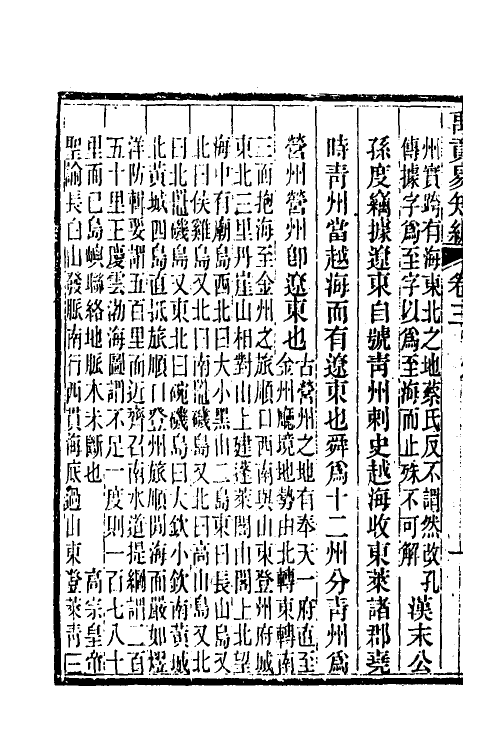 禹貢易知編 卷三
州實跨有海東北之地蔡氏反不謂然改孔
傳據字爲至字以爲至海而止殊不可解
漢末公
孫度竊據遼東自號靑州刺史越海收東萊諸郡堯
時靑州當越海而有遼東也舜爲十二州分靑州爲
營州營州卽遼東也
古營州之地有奉天一府直至
金州廳境地勢由北轉東轉南
三面抱海至金州之旅順口西南與山東登州府城
東北三里丹崖山相對山上建蓬萊閣山閣上北望
海中有廟島西北曰大小黑山二島東曰長山島又
北曰侯雞島又北曰南鼉磯島又北曰高山島又北
曰北鼉磯島又東北曰硯磯島曰大欽小欽南黃城
北黃城四島直抵旅順口登州旅順間海而嚴如熤
洋防輯要謂五百里而近齊召南水道提綱謂二百
五十里王慶雲渤海圖謂不足一度則一百七八十
里而已島嶼聯絡地脈本未斷也
高宗皇帝
聖諭長白山發脈南行西貫海底過山東登萊靑三